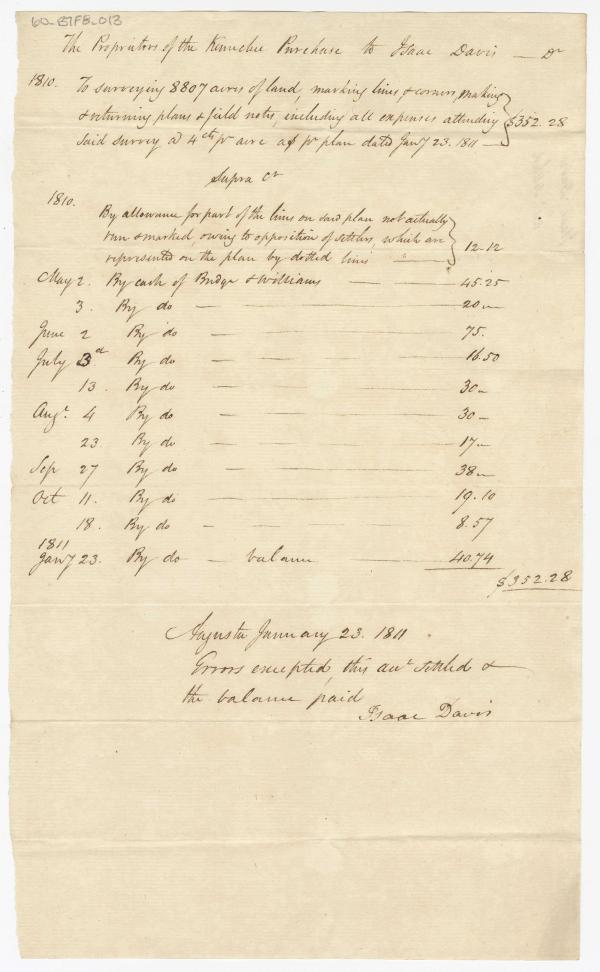 60-BTFB-013
The Proprietors of the Kennebec Purchase to Isaac Davis — Dr
1810. To surveying 8807 acres of land, marking lines & corners, making
& returning plans & field notes, including all expenses attending $352.28
said survey @ 4 cts pr acre as pr plan dated Jany 23. 1811 —
Supra Cr
1810.
By allowance for part of the lines on said plan not actually
run & marked, owing to opposition of settlers, which are 12-12
represented on the plan by dotted lines
May 2. By cash of Bridge & Williams — — 45.25
3. By do — — 20—
June 2 By do — — 75.
July 3d By do — — 16.50
13. By do — — 30—
Augt. 4 By do — — 30—
23. By do — — 17—
Sep 27 By do — — 38—
Oct 11. By do — — 19.10
18. By do — — 8.57
1811
Jany 23. By do — balance — 40.74
$352.28
Augusta January 23. 1811
Errors excepted, this acct settled &
the balance paid
Isaac Davis